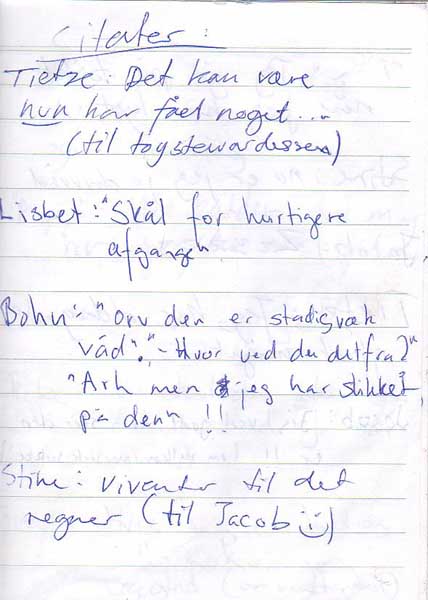 Citater:
Tietze: Det kan være
hun har fået noget...
(til togstewardessen)
Lisbet: "Skål for hurtigere
afgange"
Bohn: "Orv den er stadigvæk
våd". - Hvor ved du det fra?"
"Arh men jeg har slikket
på den" !!
Stine: Vi venter til det
regner (til Jacob ☺)